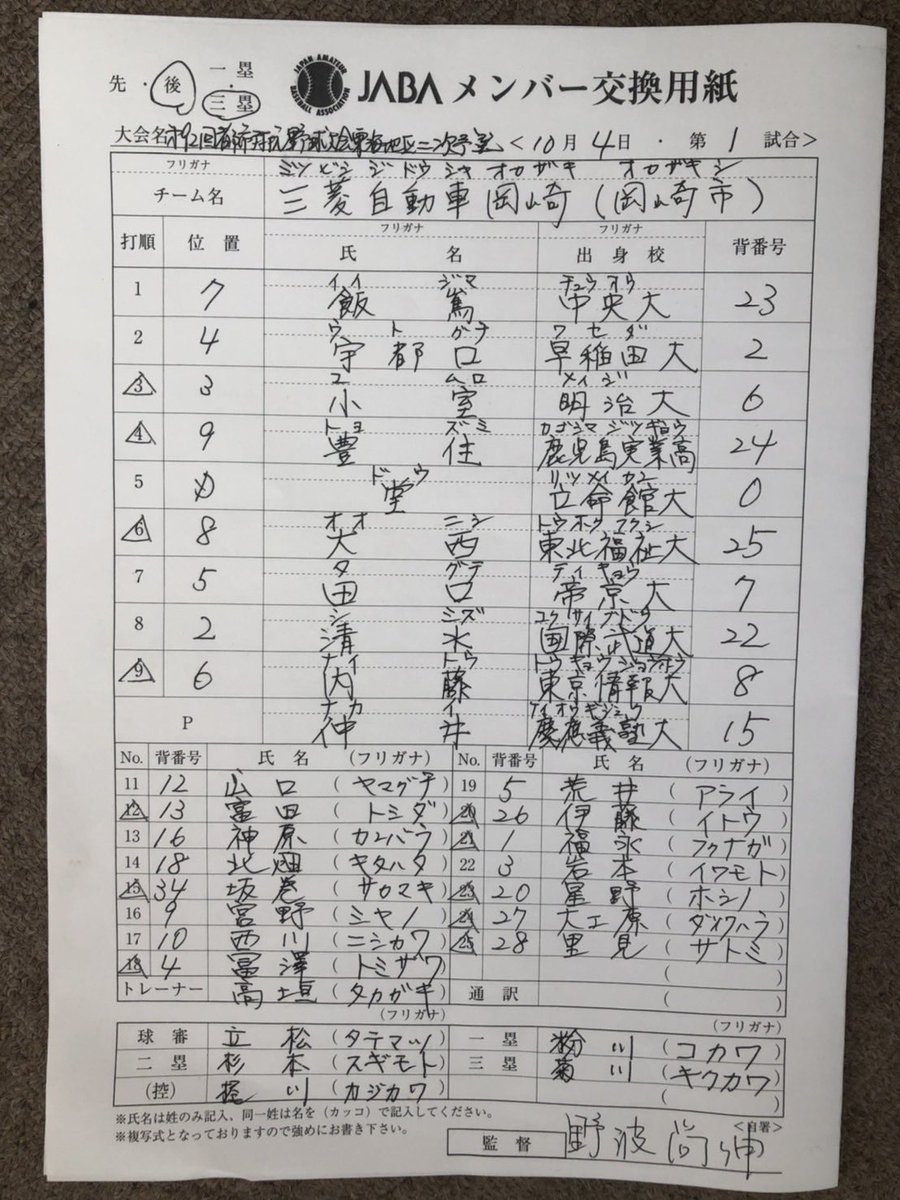 先・後 一塁・三塁 JAPAN AMATEUR BASEBALL ASSOCIATION JABA メンバー交換用紙
大会名 才92回都市対抗野球大会東海地区二次予選 <10月4日・第1試合>
フリガナ ミツビシ ジドウシャ オカザキ オカザキシ
チーム名 三菱自動車岡崎(岡崎市)
打順 位置 フリガナ 氏名 フリガナ 出身校 背番号
イイ ジマ チュウオウ
1 7 飯嶌 中央大 23
ウ ト グチ ワセダ
2 4 宇都口 早稲田大 2
コ ムロ メイジ
3 3 小室 明治大 6
トヨ ズミ カゴシマ ジツギョウ
4 9 豊住 鹿児島実業高 24
ドウ リツメイカン
5 D 堂 立命館大 0
オオ ニシ トウホクフクシ
6 8 大西 東北福祉大 25
タ グチ テイキョウ
7 5 田口 帝京大 7
シ ミズ コクサイブドウ
8 2 清水 国際武道大 22
ナイ トウ トウキョウジョウホウ
9 6 内藤 東京情報大 8
ナカ イ ケイオウギジュク
P 仲井 慶應義塾大 15
No. 背番号 氏名 (フリガナ) No. 背番号 氏名 (フリガナ)
11 12 山口 (ヤマグチ) 19 5 荒井 (アライ)
12 13 富田 (トミダ) 20 26 伊藤 (イトウ)
13 16 神原 (カンバラ) 21 1 福永 (フクナガ)
14 18 北畑 (キタハタ) 22 3 岩本 (イワモト)
15 34 坂巻 (サカマキ) 23 20 星野 (ホシノ)
16 9 宮野 (ミヤノ) 24 27 大工原 (ダイクハラ)
17 10 西川 (ニシカワ) 25 28 里見 (サトミ)
18 4 冨澤 (トミザワ) ( )
トレーナー 高垣 (タカガキ) 通訳 ( )
(フリガナ) (フリガナ)
球審 立松 (タテマツ) 一塁 粉川 (コカワ)
二塁 杉本 (スギモト) 三塁 菊川 (キクカワ)
(控) 梶川 (カジカワ) ( )
※氏名は姓のみ記入、同一姓は名を(カッコ)で記入してください。
※複写式となっておりますので強めにお書き下さい。 <自署>
監督 野波尚伸